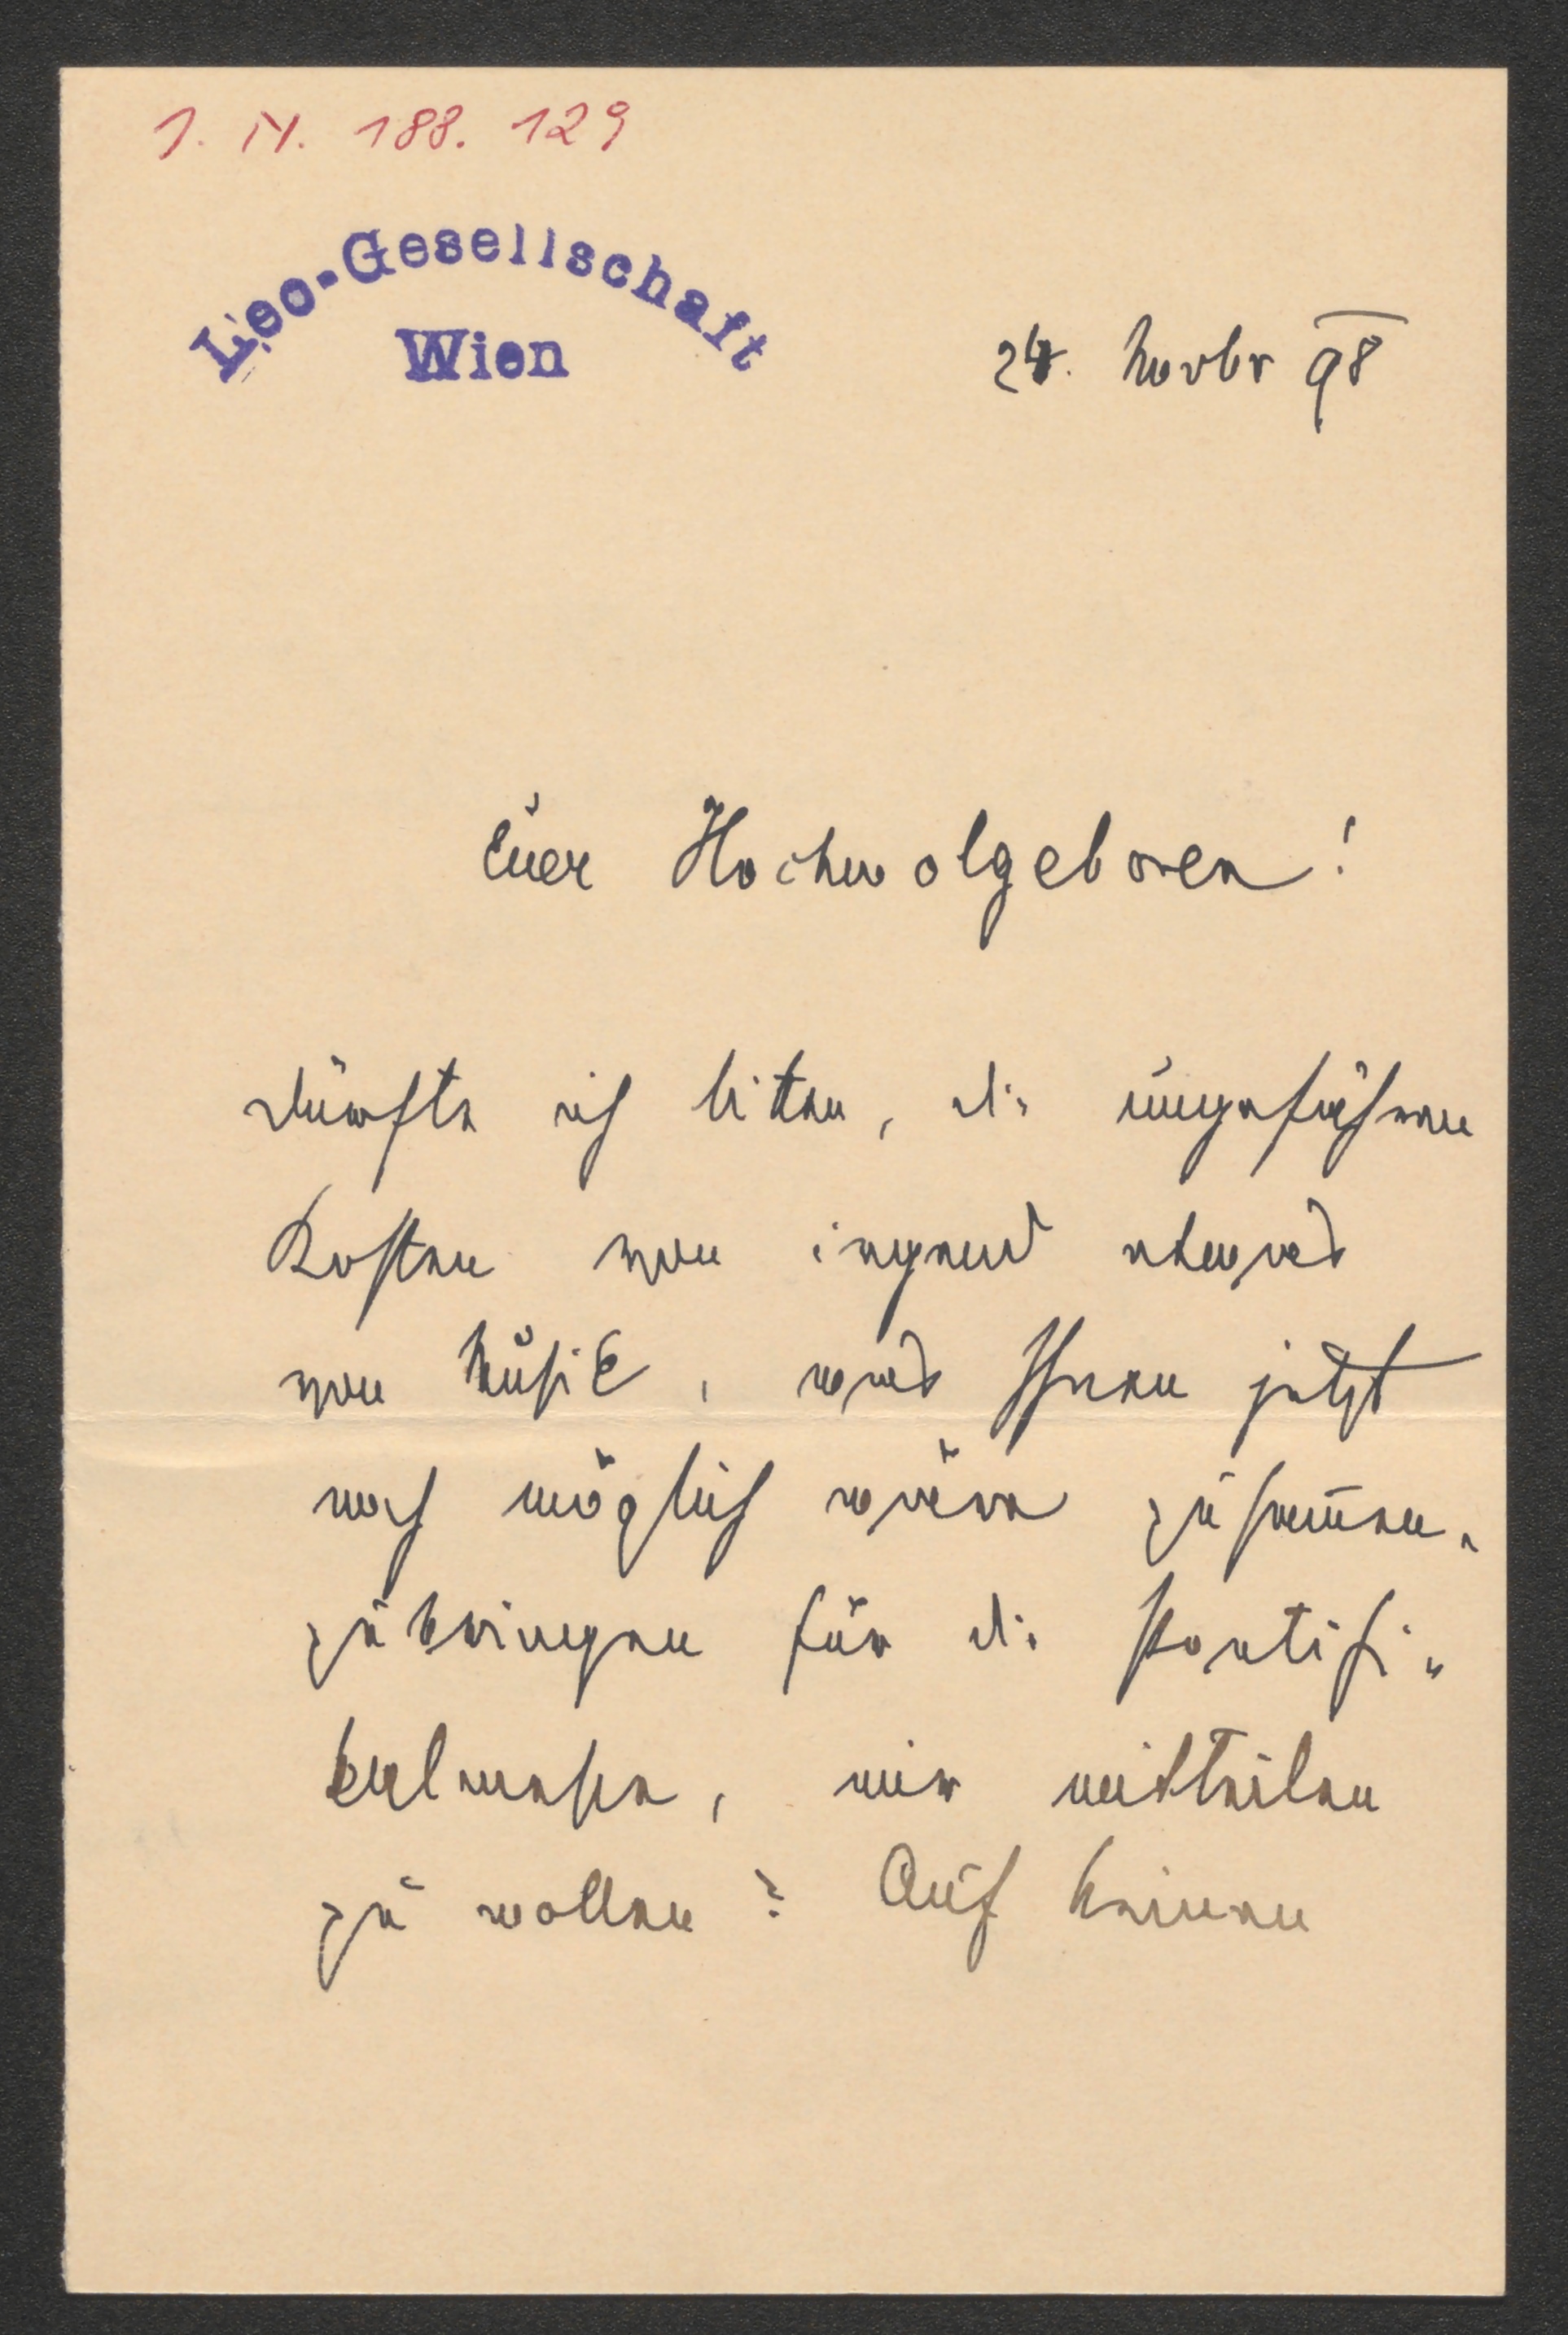 J. N. 188.129
Leo-Gesellschaft
Wien
24. Novbr 98
Euer Hochwolgeboren!
dürfte ich bitten, die ungefähren
Kosten von irgend etwas
von Musik, was Ihnen jetzt
noch möglich wäre zusam̄en-
zubringen für die Pontifi-
kalmesse, mir mitteilen
zu wollen? Auf keinen